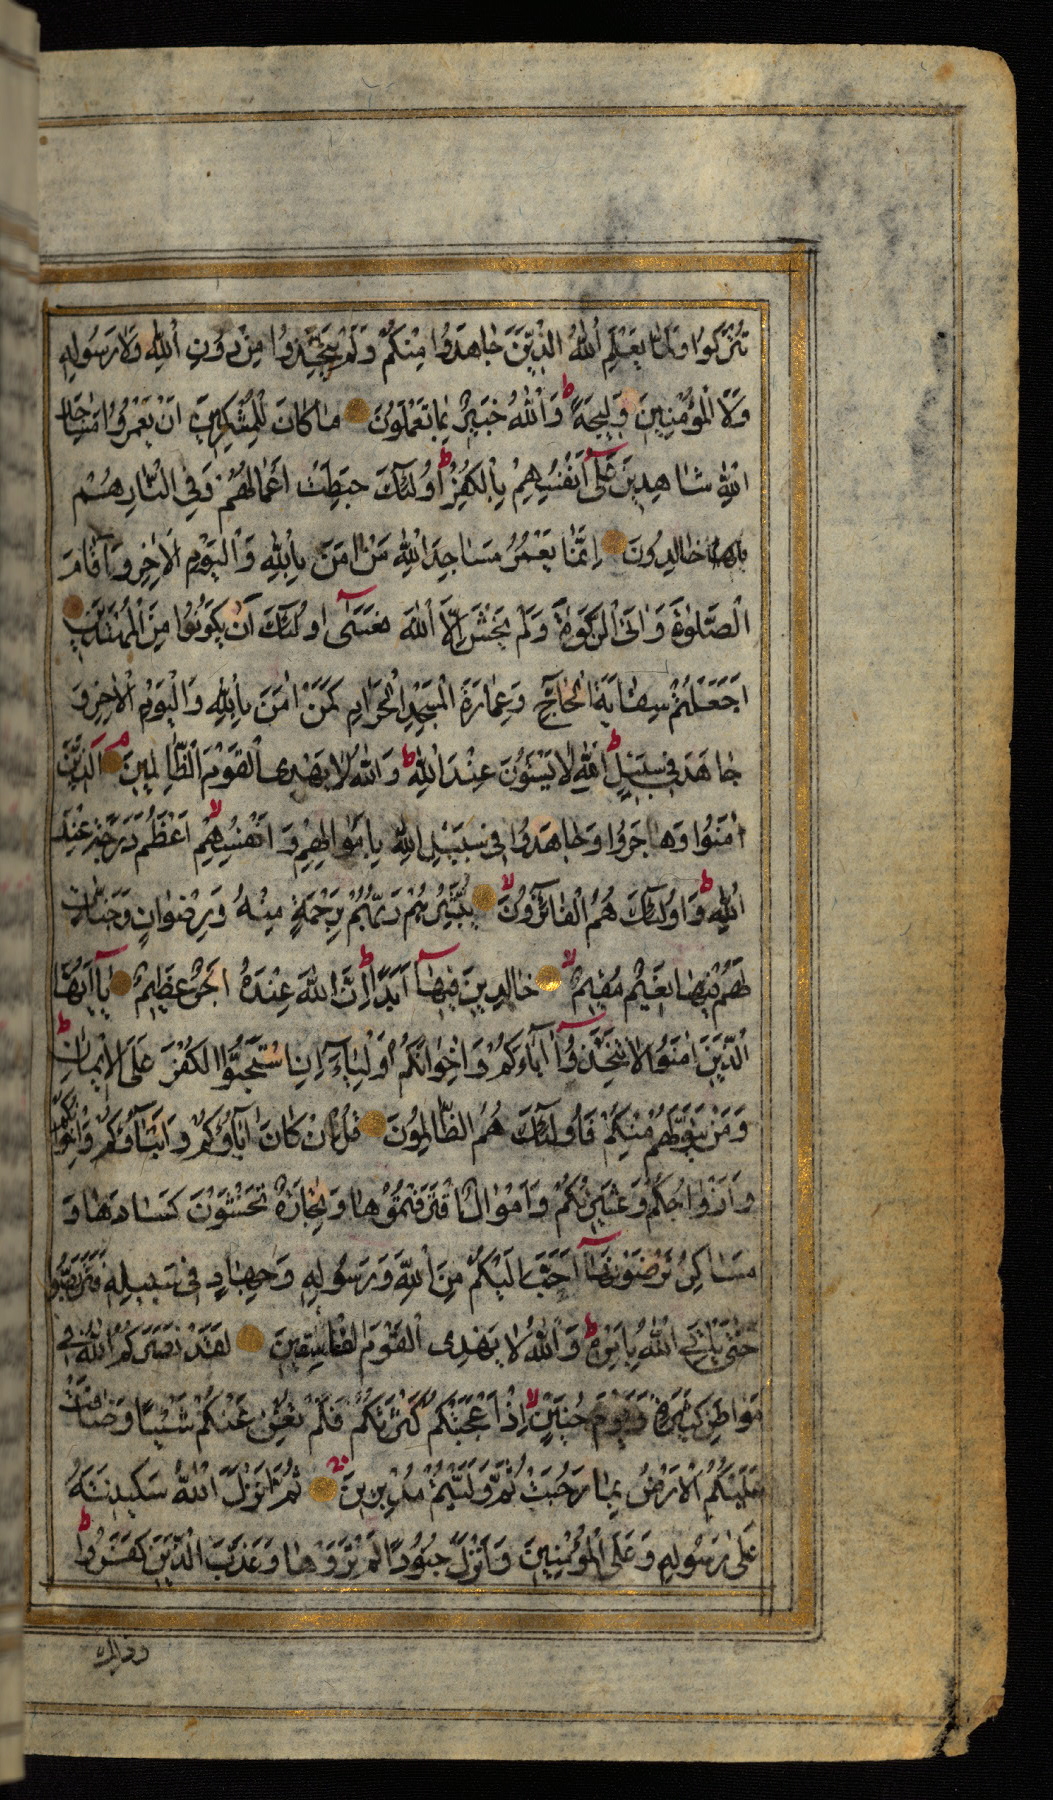 تُتْرَكُوا وَلَمَّا يَعْلَمِ اللّٰهُ الَّذِينَ جَاهَدُوا مِنْكُمْ وَلَمْ يَتَّخِذُوا مِنْ دُونِ اللّٰهِ وَلَا رَسُولِهِ
وَلَا الْمُؤْمِنِينَ وَلِيجَةً ط وَاللّٰهُ خَبِيرٌ بِمَا تَعْمَلُونَ مَا كَانَ لِلْمُشْرِكِينَ اَنْ يَعْمُرُوا مَسَاجِدَ
اللّٰهِ شَاهِدِينَ عَلَى اَنْفُسِهِمْ بِالْكُفْرِ ط اُولٰئِكَ حَبِطَتْ اَعْمَالُهُمْ وَفِي النَّارِ هُمْ
خَالِدُونَ اِنَّمَا يَعْمُرُ مَسَاجِدَ اللّٰهِ مَنْ اٰمَنَ بِاللّٰهِ وَالْيَوْمِ الْاٰخِرِ وَاَقَامَ
الصَّلٰوةَ وَاٰتَى الزَّكٰوةَ وَلَمْ يَخْشَ اِلَّا اللّٰهَ فَعَسٰى اُولٰئِكَ اَنْ يَكُونُوا مِنَ الْمُهْتَدِينَ
اَجَعَلْتُمْ سِقَايَةَ الْحَاجِّ وَعِمَارَةَ الْمَسْجِدِ الْحَرَامِ كَمَنْ اٰمَنَ بِاللّٰهِ وَالْيَوْمِ الْاٰخِرِ وَ
جَاهَدَ فِي سَبِيلِ اللّٰهِ ط لَا يَسْتَوُنَ عِنْدَ اللّٰهِ ط وَاللّٰهُ لَا يَهْدِى الْقَوْمَ الظَّالِمِينَ م اَلَّذِينَ
اٰمَنُوا وَهَاجَرُوا وَجَاهَدُوا فِي سَبِيلِ اللّٰهِ بِاَمْوَالِهِمْ وَاَنْفُسِهِمْ لا اَعْظَمُ دَرَجَةً عِنْدَ
اللّٰهِ ط وَاُولٰئِكَ هُمُ الْفَائِزُونَ لا يُبَشِّرُهُمْ رَبُّهُمْ بِرَحْمَةٍ مِنْهُ وَرِضْوَانٍ وَجَنَّاتٍ
لَهُمْ فِيهَا نَعِيمٌ مُقِيمٌ لا خَالِدِينَ فِيهَا اَبَدًا ط اِنَّ اللّٰهَ عِنْدَهُ اَجْرٌ عَظِيمٌ يَا اَيُّهَا
الَّذِينَ اٰمَنُوا لَا تَتَّخِذُوا اٰبَاءَكُمْ وَاِخْوَانَكُمْ اَوْلِيَاءَ اِنِ اسْتَحَبُّوا الْكُفْرَ عَلَى الْاِيمَانِ ط
وَمَنْ يَتَوَلَّهُمْ مِنْكُمْ فَاُولٰئِكَ هُمُ الظَّالِمُونَ قُلْ اِنْ كَانَ اٰبَاؤُكُمْ وَاَبْنَاؤُكُمْ وَاِخْوَانُكُمْ
وَاَزْوَاجُكُمْ وَعَشِيرَتُكُمْ وَاَمْوَالٌ اقْتَرَفْتُمُوهَا وَتِجَارَةٌ تَخْشَوْنَ كَسَادَهَا وَ
مَسَاكِنُ تَرْضَوْنَهَا اَحَبَّ اِلَيْكُمْ مِنَ اللّٰهِ وَرَسُولِهِ وَجِهَادٍ فِي سَبِيلِهِ فَتَرَبَّصُوا
حَتّٰى يَأْتِيَ اللّٰهُ بِاَمْرِهِ ط وَاللّٰهُ لَا يَهْدِى الْقَوْمَ الْفَاسِقِينَ لَقَدْ نَصَرَكُمُ اللّٰهُ فِي
مَوَاطِنَ كَثِيرَةٍ وَيَوْمَ حُنَيْنٍ لا اِذْ اَعْجَبَتْكُمْ كَثْرَتُكُمْ فَلَمْ تُغْنِ عَنْكُمْ شَيْئًا وَضَاقَتْ
عَلَيْكُمُ الْاَرْضُ بِمَا رَحُبَتْ ثُمَّ وَلَّيْتُمْ مُدْبِرِينَ ثُمَّ اَنْزَلَ اللّٰهُ سَكِينَتَهُ
عَلَى رَسُولِهِ وَعَلَى الْمُؤْمِنِينَ وَاَنْزَلَ جُنُودًا لَمْ تَرَوْهَا وَعَذَّبَ الَّذِينَ كَفَرُوا ط
وذلك